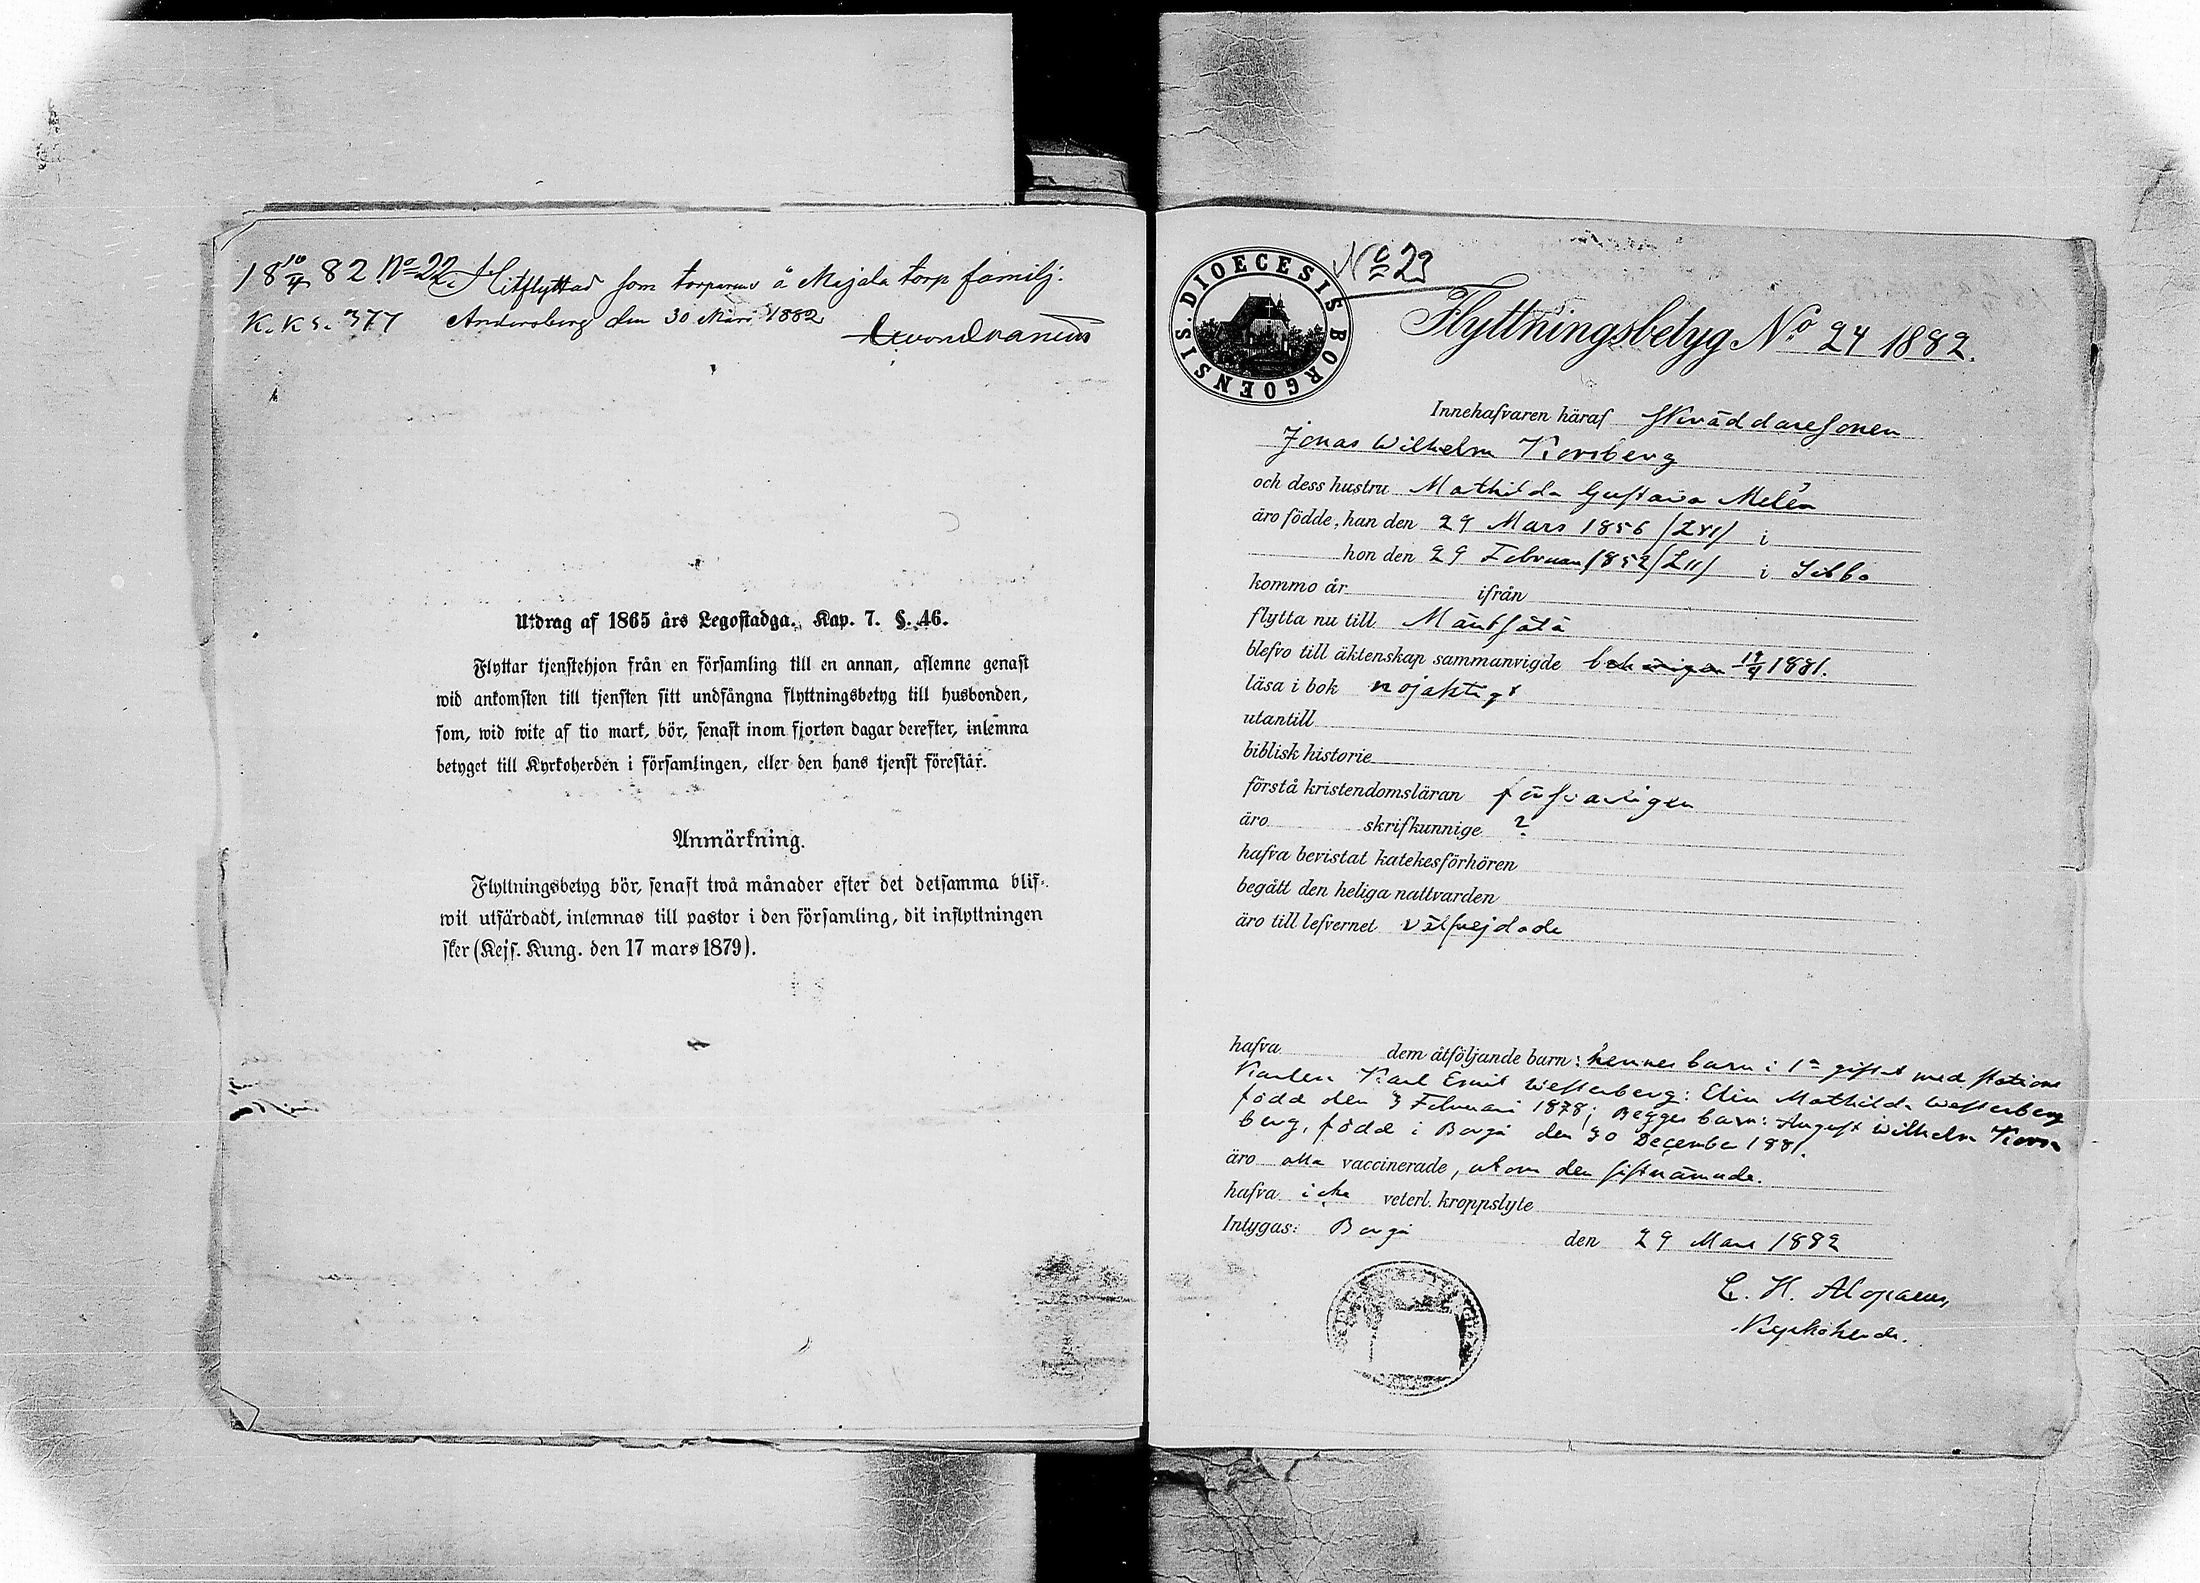 18 10/4 82 No 22. Hitflyttad som torparens å Majala torp familj.
K. K s. 377 Andersberg den 30 Mars 1882
Utdrag af 1865 års Legostadga. Kap. 7. §. 46.
Flyttar tjenstehjon från en församling till en annan, aflemne genast
wid ankomsten till tjensten sitt undfångna flyttningsbetyg till husbonden,
som, wid wite af tio mark, bör, senast inom fjorton dagar derefter, inlemna
betyget till Kyrkoherden i församlingen, eller den hans tjenst förestår.
Anmärkning.
Flyttningsbetyg bör, senast twå månader efter det detsamma blif-
wit utfärdadt, inlemnas till pastor i den församling, dit inflyttningen
sker (Kejs. Kung. den 17 mars 1879).
DIOECESIS BORGOENSIS.
No 23
Flyttningsbetyg No. 24 1882.
Innehafvaren häraf Skräddaresonen
Jonas Wilhelm Korsberg
och dess hustru Mathilda Gustava Melén
äro födde, han den 29 Mars 1856 /LVI/ i
hon den 29 Februari 1852 /LII/ i Sibbo
kommo år ifrån
flytta nu till Mäntsälä
blefvo till äktenskap sammanvigde 19/4 1881.
läsa i bok nöjaktigt
utantill
biblisk historie
förstå kristendomsläran försvarligen
äro skrifkunnige ?
hafva bevistat katekesförhören
begått den heliga nattvarden
äro till lefvernet välfrejdade
hafva dem åtföljande barn: hennes barn i 1a giftet med stations
karlen Karl Emil Westerberg: Elin Mathilda Westerberg
född den 3 Februari 1878; Begges barn: August Wilhelm Kors-
berg, född i Borgå den 30 December 1881.
äro alla vaccinerade, utom den sistnämnde.
hafva icke veterl. kroppslyte
Intygas: Borgå den 29 Mars 1882
C. H. Alopaeus,
Kyrkoherde.